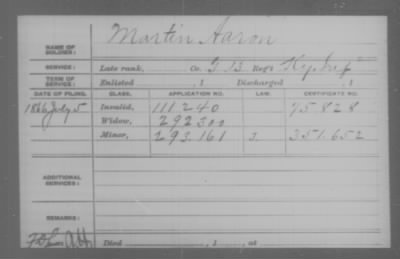 Martin Aaron
NAME OF SOLDIER:
SERVICE: Late rank, Co. G 13 Reg't Ky. Inf
TERM OF SERVICE: Enlisted , 1 Discharged , 1
DATE OF FILING. CLASS. APPLICATION NO. LAW. CERTIFICATE NO.
1866 July 5 Invalid, 111240 95828
Widow, 292300
Minor, 293.161 351.652
ADDITIONAL SERVICES:
REMARKS:
Died , 1 , at